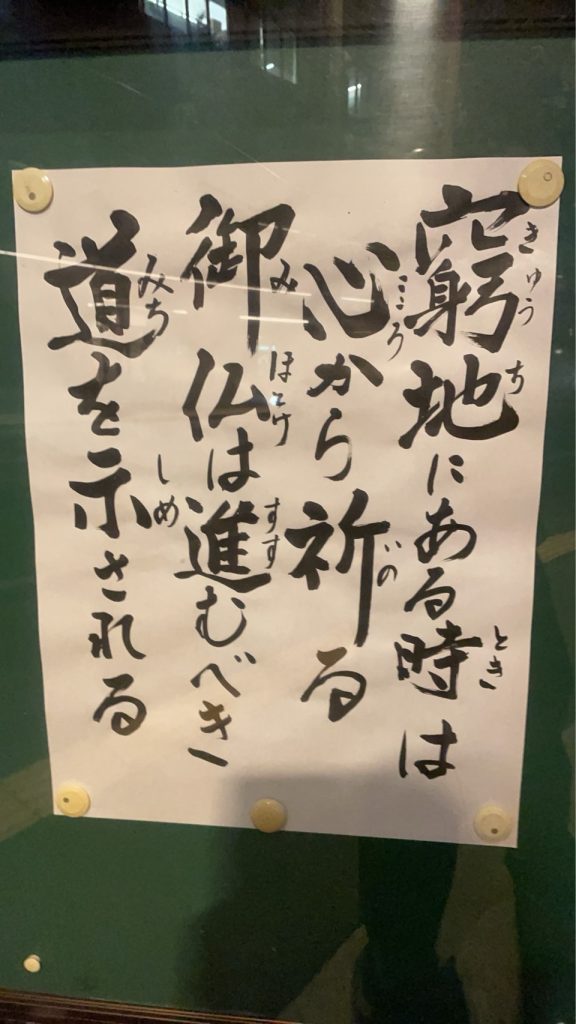 窮地にある時は
心から祈る
御仏は進むべき
道を示される
きゅうち
とき
こころ
いの
みほとけ
すす
みち
しめ